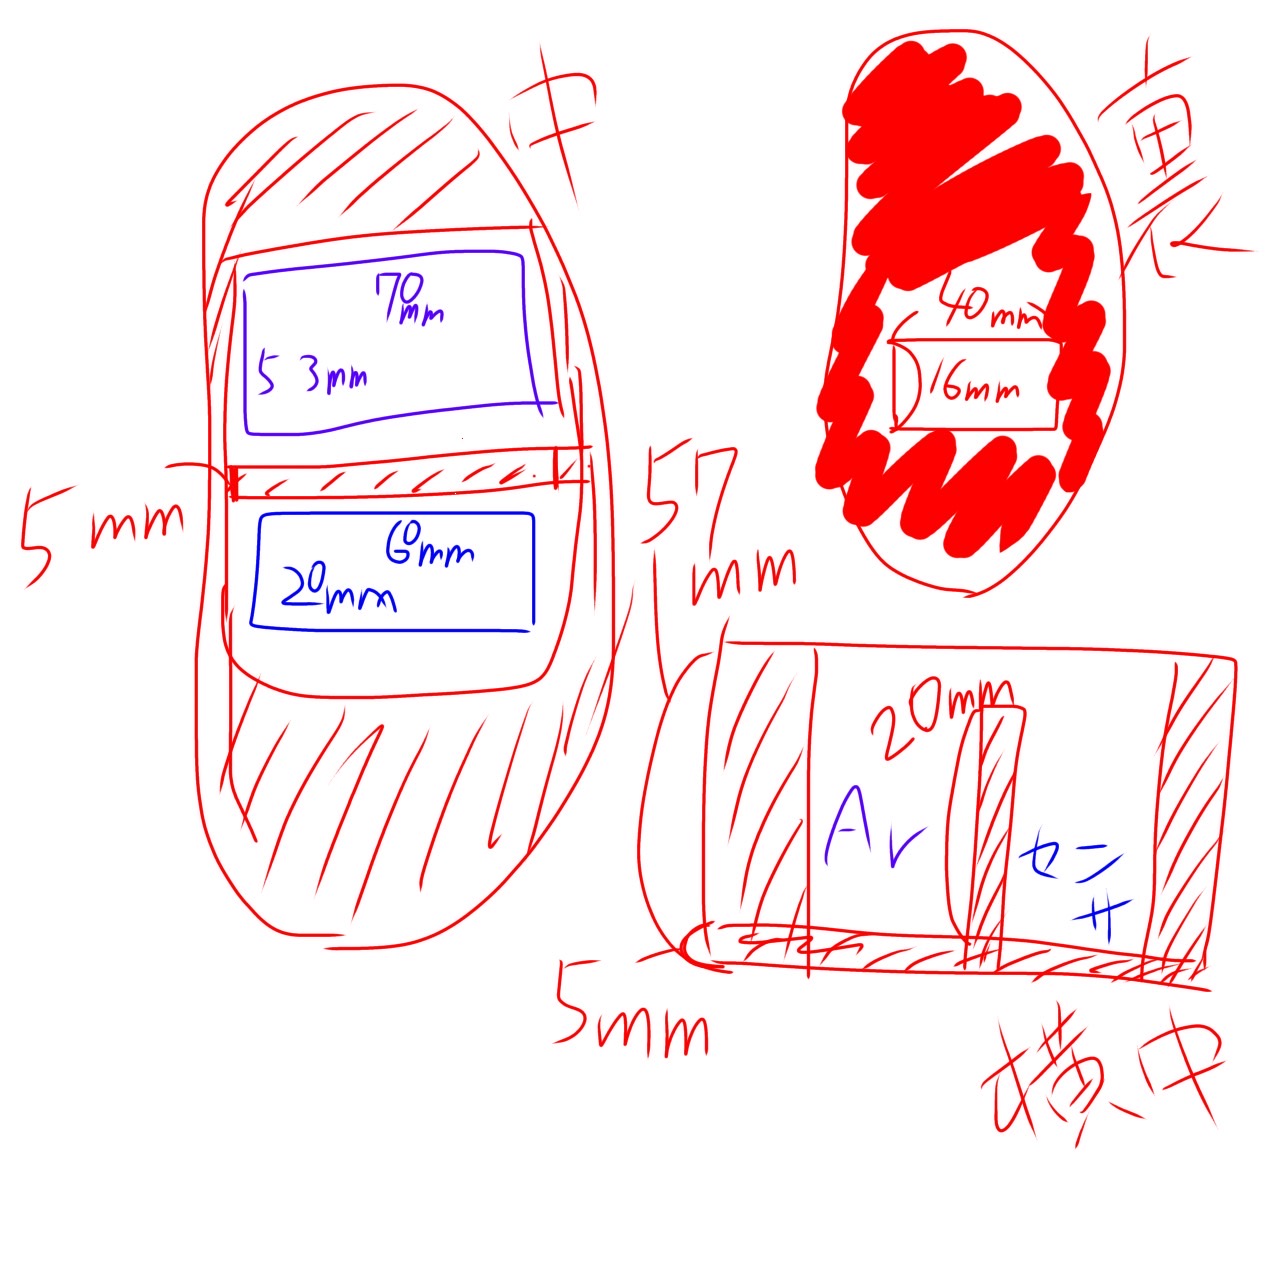 中
70mm
53mm
5mm
60mm
20mm
裏
40mm
16mm
57
mm
20mm
Ar
センサ
5mm
横中